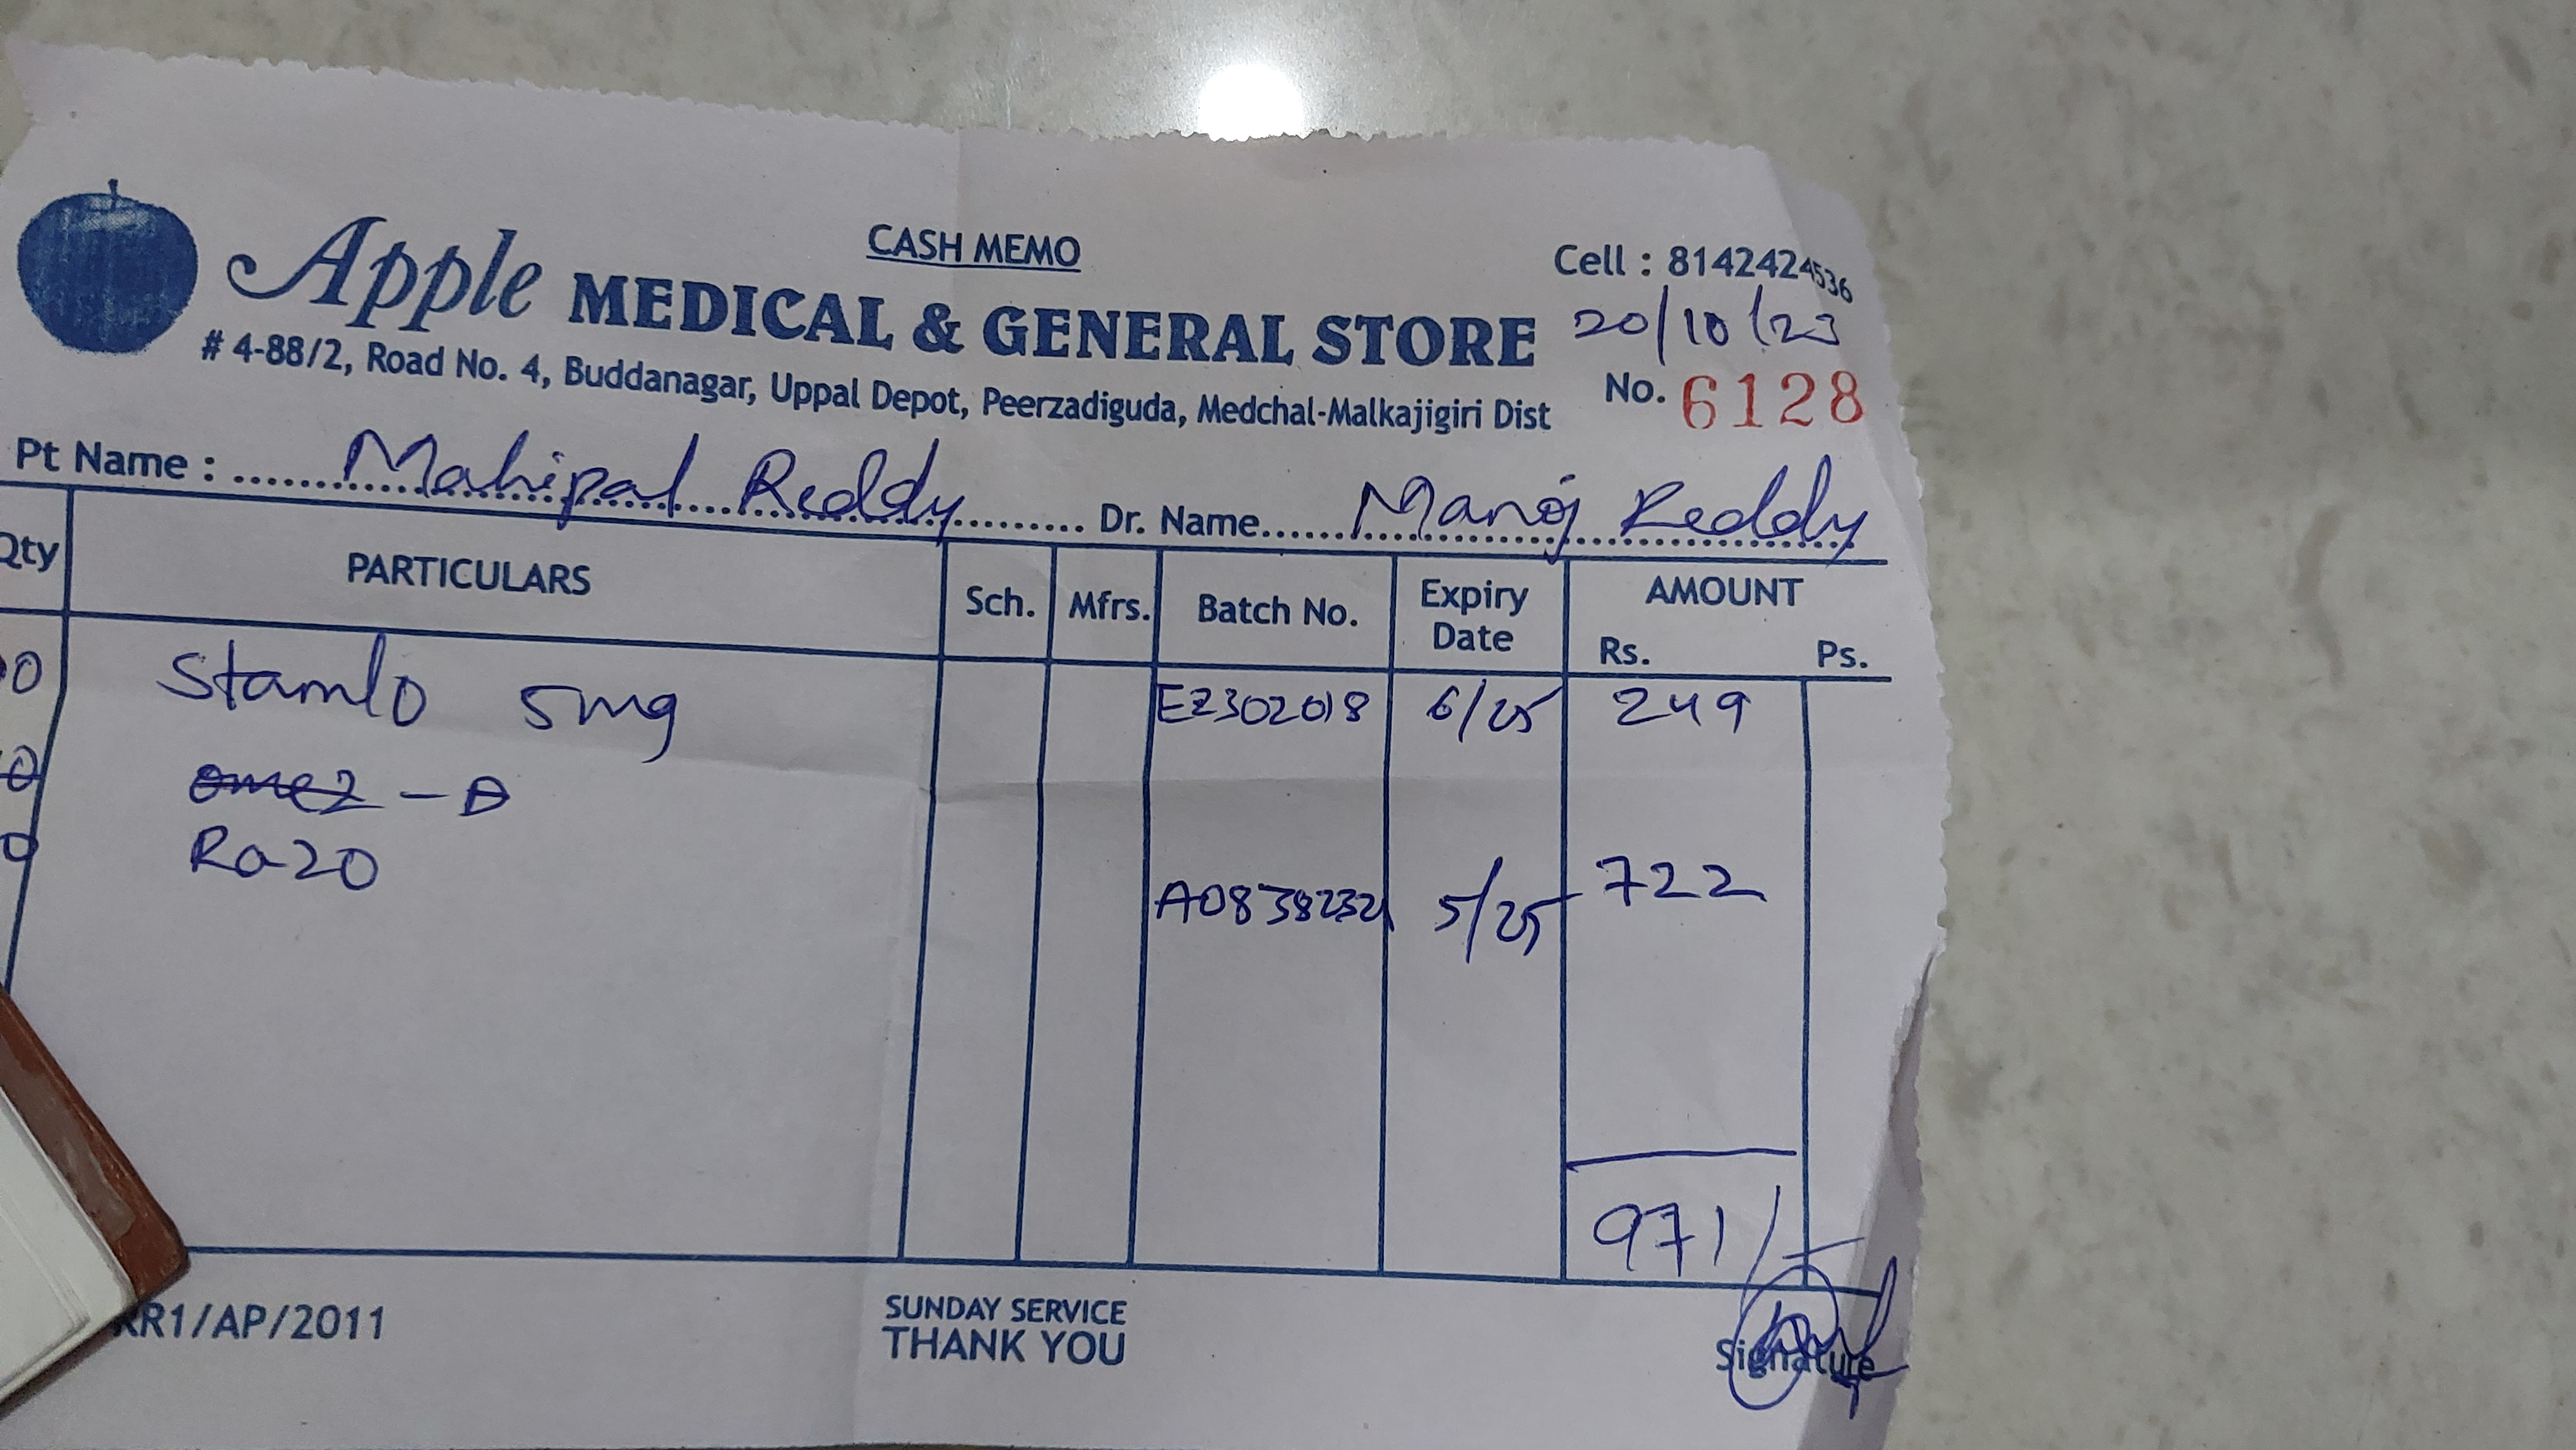 CASH MEMO
Cell : 8142424536
Apple MEDICAL & GENERAL STORE
20/10/23
# 4-88/2, Road No. 4, Buddanagar, Uppal Depot, Peerzadiguda, Medchal-Malkajigiri Dist
No. 6128
Pt Name : Mahipal Reddy Dr. Name Manoj Reddy
Qty PARTICULARS Sch. Mfrs. Batch No. Expiry Date AMOUNT Rs. Ps.
0 Stamlo 5mg EZ302018 6/25 249
0 omez - D
0 Razo 5/25 722
971/-
RR1/AP/2011
SUNDAY SERVICE
THANK YOU
Signature